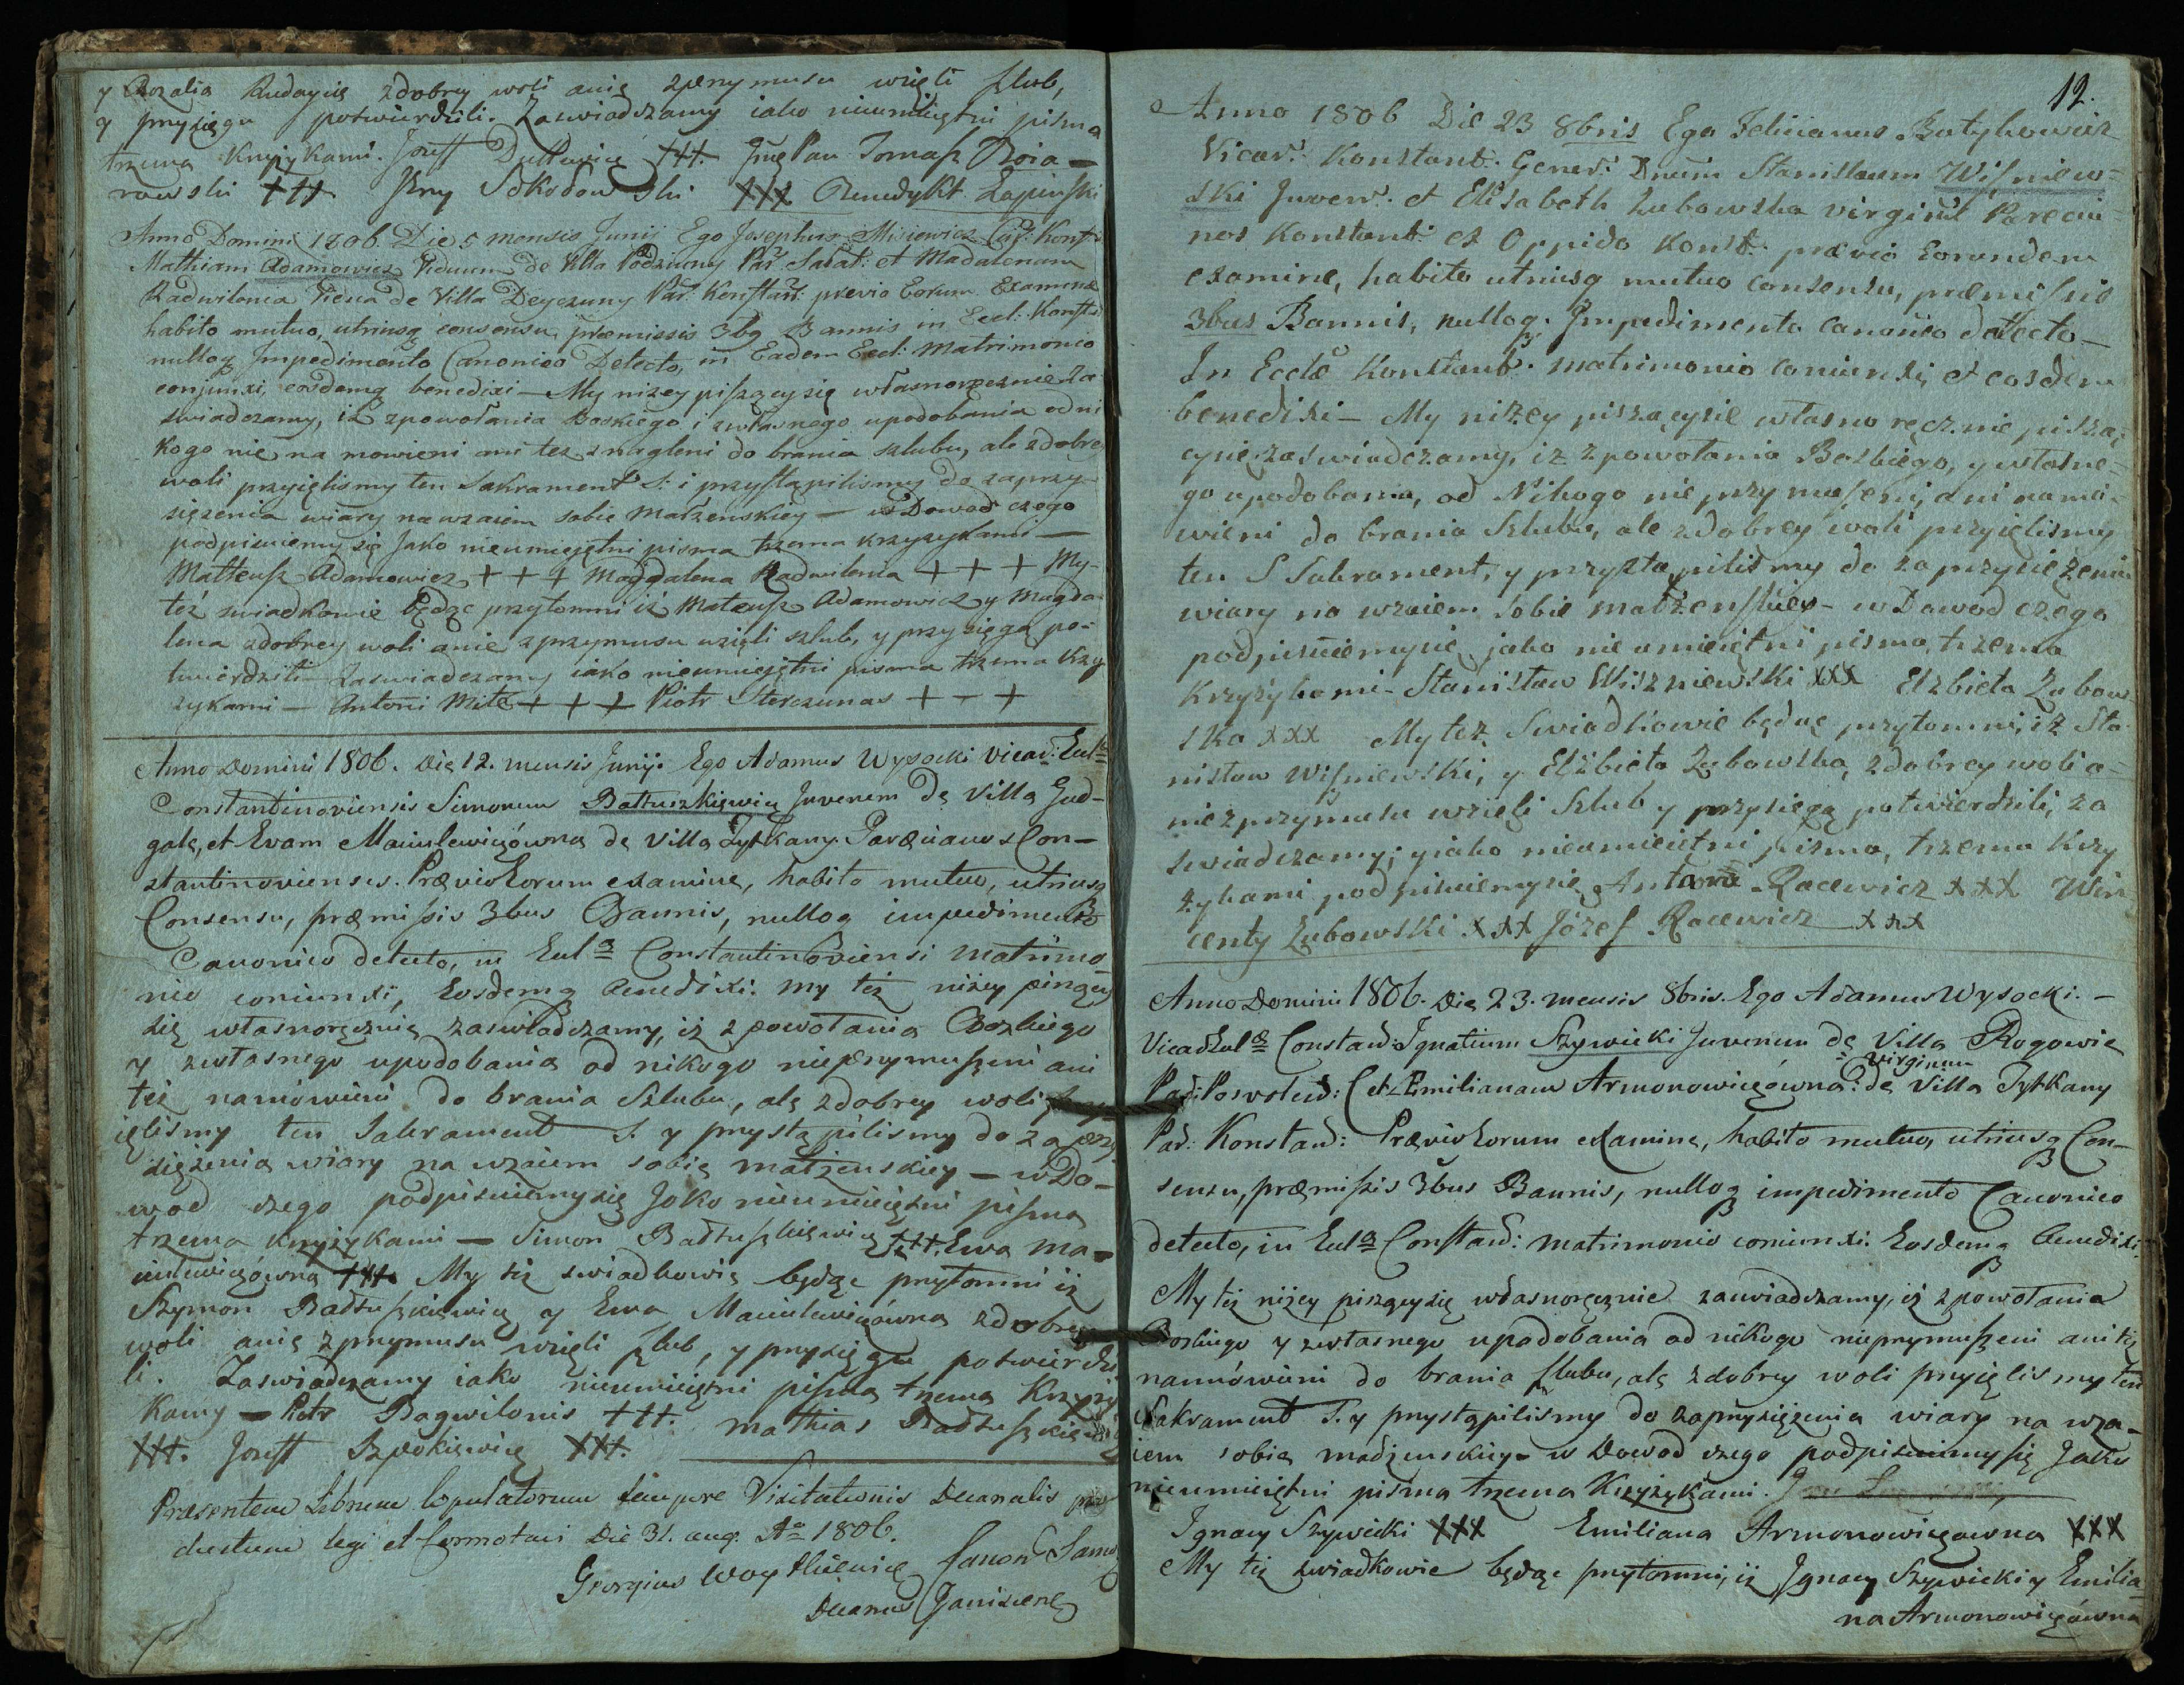 y Rozalia Rudaycię zdobrey woli anię zprzymusu wzięli szlub,
y przysięgu potwierdzili. Zaswiadszamy iako nieumiiętni pisma
trzema Krzyżykami. Jozeff +++ Jmę Pan Tomasz Roia-
rowski +++ Jerzy Sokołowski +++ Benedykt Łapinski
Anno Domini 1806. Die 5 mensis Junij Ego Josephus Misiewicz Cap: Konst:
Mathiam Adamowicz Viduum de Villa Podziuny Par: Sałat: et Madalenam
Radwilonia Vidua de Villa Deyczuny Par: Konstan: previo Eorum Examine
habito mutuo, utriusq consensu, præmissis 3bq Bannis in Eccl: Konst:
nulloq Impedimento Canonico Detecto, in Eadem Eccl: Matrimonio
conjunxi, eosdemq benedixi — My nizey piszący się własnoręcznie Za
swiadczamy, iż zpowołania Boskiego i zwłasnego upodobania od ni
kogo nie na mowieni ani tez znagleni do brania szlubu, ale zdobrey
woli przyięlismy ten Sakrament S: i przystąpilismy do zaprzy-
siężenia wiary nawzaiem sobie małzenskiey — w Dowod czego
podpisuiemy się Jako nieumieiętni pisma trzema krzyzykami —
Matteusz Adamowicz + + + Magdalena Radwilonia + + + My
też swiadkowie będąc przytomni iż Mateusz Adamowicz y Magda
lena zdobrey woli anie zprzymusu wzięli szlub, y przysięgą po-
twierdzili — Zaswiadczamy iako nieumieiętni pisma trzema Krzy
zykami — Antoni Mite + + + Piotr Sterczunas + + +
Anno Domini 1806. Die 12. mensis Junij. Ego Adamus Wysocki Vicar: Eccl:
Constantinoviensis Simonem Bałtuszkiewicz Juvenem De Villa Gud-
gale, et Evam Maciulewiczówna de Villa Zytkany. Paræcianos Con-
stantinovienses. Prævio Eorum examine, habito mutuo, utriusq
Consensu, præmissis 3bus Bannis, nulloq impedimento
Canonico detecto, in Eccla Constantinoviensi matrimo
nio coniunxi, Eosdemq Benedixi: my też niżey piszący
się własnoręcznie zaswiadczamy, iż z powołania Bozkiego
y zwłasnego upodobania od nikogo nieprzymuszeni ani
też namówieni do brania Szlubu, ale zdobrey woli przy
ięlismy ten Sakrament S. y przystąpilismy do zaprzy
siężenia wiary na wzaiem sobie małżenskiey — w Do-
wod czego podpisuiemysię Jako nieumieiętni pisma
trzema krzyżykami — Simon Bałtuszkiewicz +++. Ewa Ma-
ciulewiczówna +++ My też swiadkowie będąc przytomni iż
Szymon Bałtuszkiewicz y Ewa Maciulewiczówna zdobrey
woli anie zprzymusu wzięli szlub, y przysięgu potwierdzi
li. Zaswiadczamy iako nieumieiętni pisma trzema Krzyży
kamy — Piotr Bagwilonis +++. mathias Bałtuszkiewicz
+++. Jozeff Szpokiewicz +++.
Præsentem Librum Copulatorum tempore Visitationis Decanalis pro
ductum legi et connotavi Die 31. aug. Ao 1806.
Georgius Woytkiewicz Canon Samog
Decanus Janiscen
12.
Anno 1806 Die 23 8bris Ego Felicianus Butykowicz
Vicar: Konstant: Gener: Dnum Stanislaum Wisniew-
ski Juven: et Elisabeth Zubowska virginem Paræcia-
nos Konstant: ex Oppido Konst: prævio Eorundem
examine, habito utriusq mutuo consensu, præmissis
3bus Bannis, nulloq. Impedimento canonico detecto —
In Eccla Konstant: matrimonio coniunxi, et eosdem
benedixi — My niżey piszącysię własno ręcznie pisza,
cysię zaswiadczamy, iz zpowołania Boskiego, y własne-
go upodobania, od Nikogo nie przymuszeni, ani namo-
wieni do brania Szlubu, ale zdobrey woli przyięlismy
ten S Sakrament, y przystąpilismy do zaprzysiężenia
wiary na wzaiem sobie małżenskiey — w Dowod czego
podpisuiemysię jako nieumieiętni pisma, trzema
Krzyżykami — Stanisław Wiszniewski xxx Elzbieta Zubow
ska xxx My też Swiadkowie będąc przytomni, iż Sta-
nisław Wiszniewski, y Elżbieta Zubowska, zdobrey woli a-
nie zprzymusu wzieli Szlub y przysięgą potwierdzili, za
swiadczamy; y jako nieumieiętni pisma, trzema krzy
żykami podpisuiemysię Antoni Racewicz xxx Win
centy Zubowski xxx Józef Racewicz xxx
Anno Domini 1806. Die 23. mensis 8bris. Ego Adamus Wysocki. —
Vicar Eccla Constan: Ignatium Szywicki Juvenem de Villa Rogowie
Par: Posvolen: et Emilianam Armonowiczówna: virginem de Villa Zytkany
Par: Konstan: Prævio Eorum examine, habito mutuo, utriusq Con-
sensu, præmissis 3bus Bannis, nulloq impedimento Canonico
detecto, in Eccla Constan: matrimonio coniunxi. Eosdemq Benedixi
My też niżey piszącysię własnoręcznie zaswiadczamy, iż zpowołania
Boskiego y zwłasnego upodobania od nikogo nieprzymuszeni ani też
namówieni do brania szlubu, ale zdobrey woli przyięlismy ten
Sakrament S. y przystąpilismy do zaprzysiężenia wiary na wza-
iem sobie małżenskiey — w Dowod czego podpisuiemysię Jako
nieumieiętni pisma trzema Krzyżykami.
Ignacy Szywicki xxx Emiliana Armonowiczowna xxx
My też swiadkowie będąc przytomni, iż Ignacy Szywicki y Emilia-
na Armonowiczówna